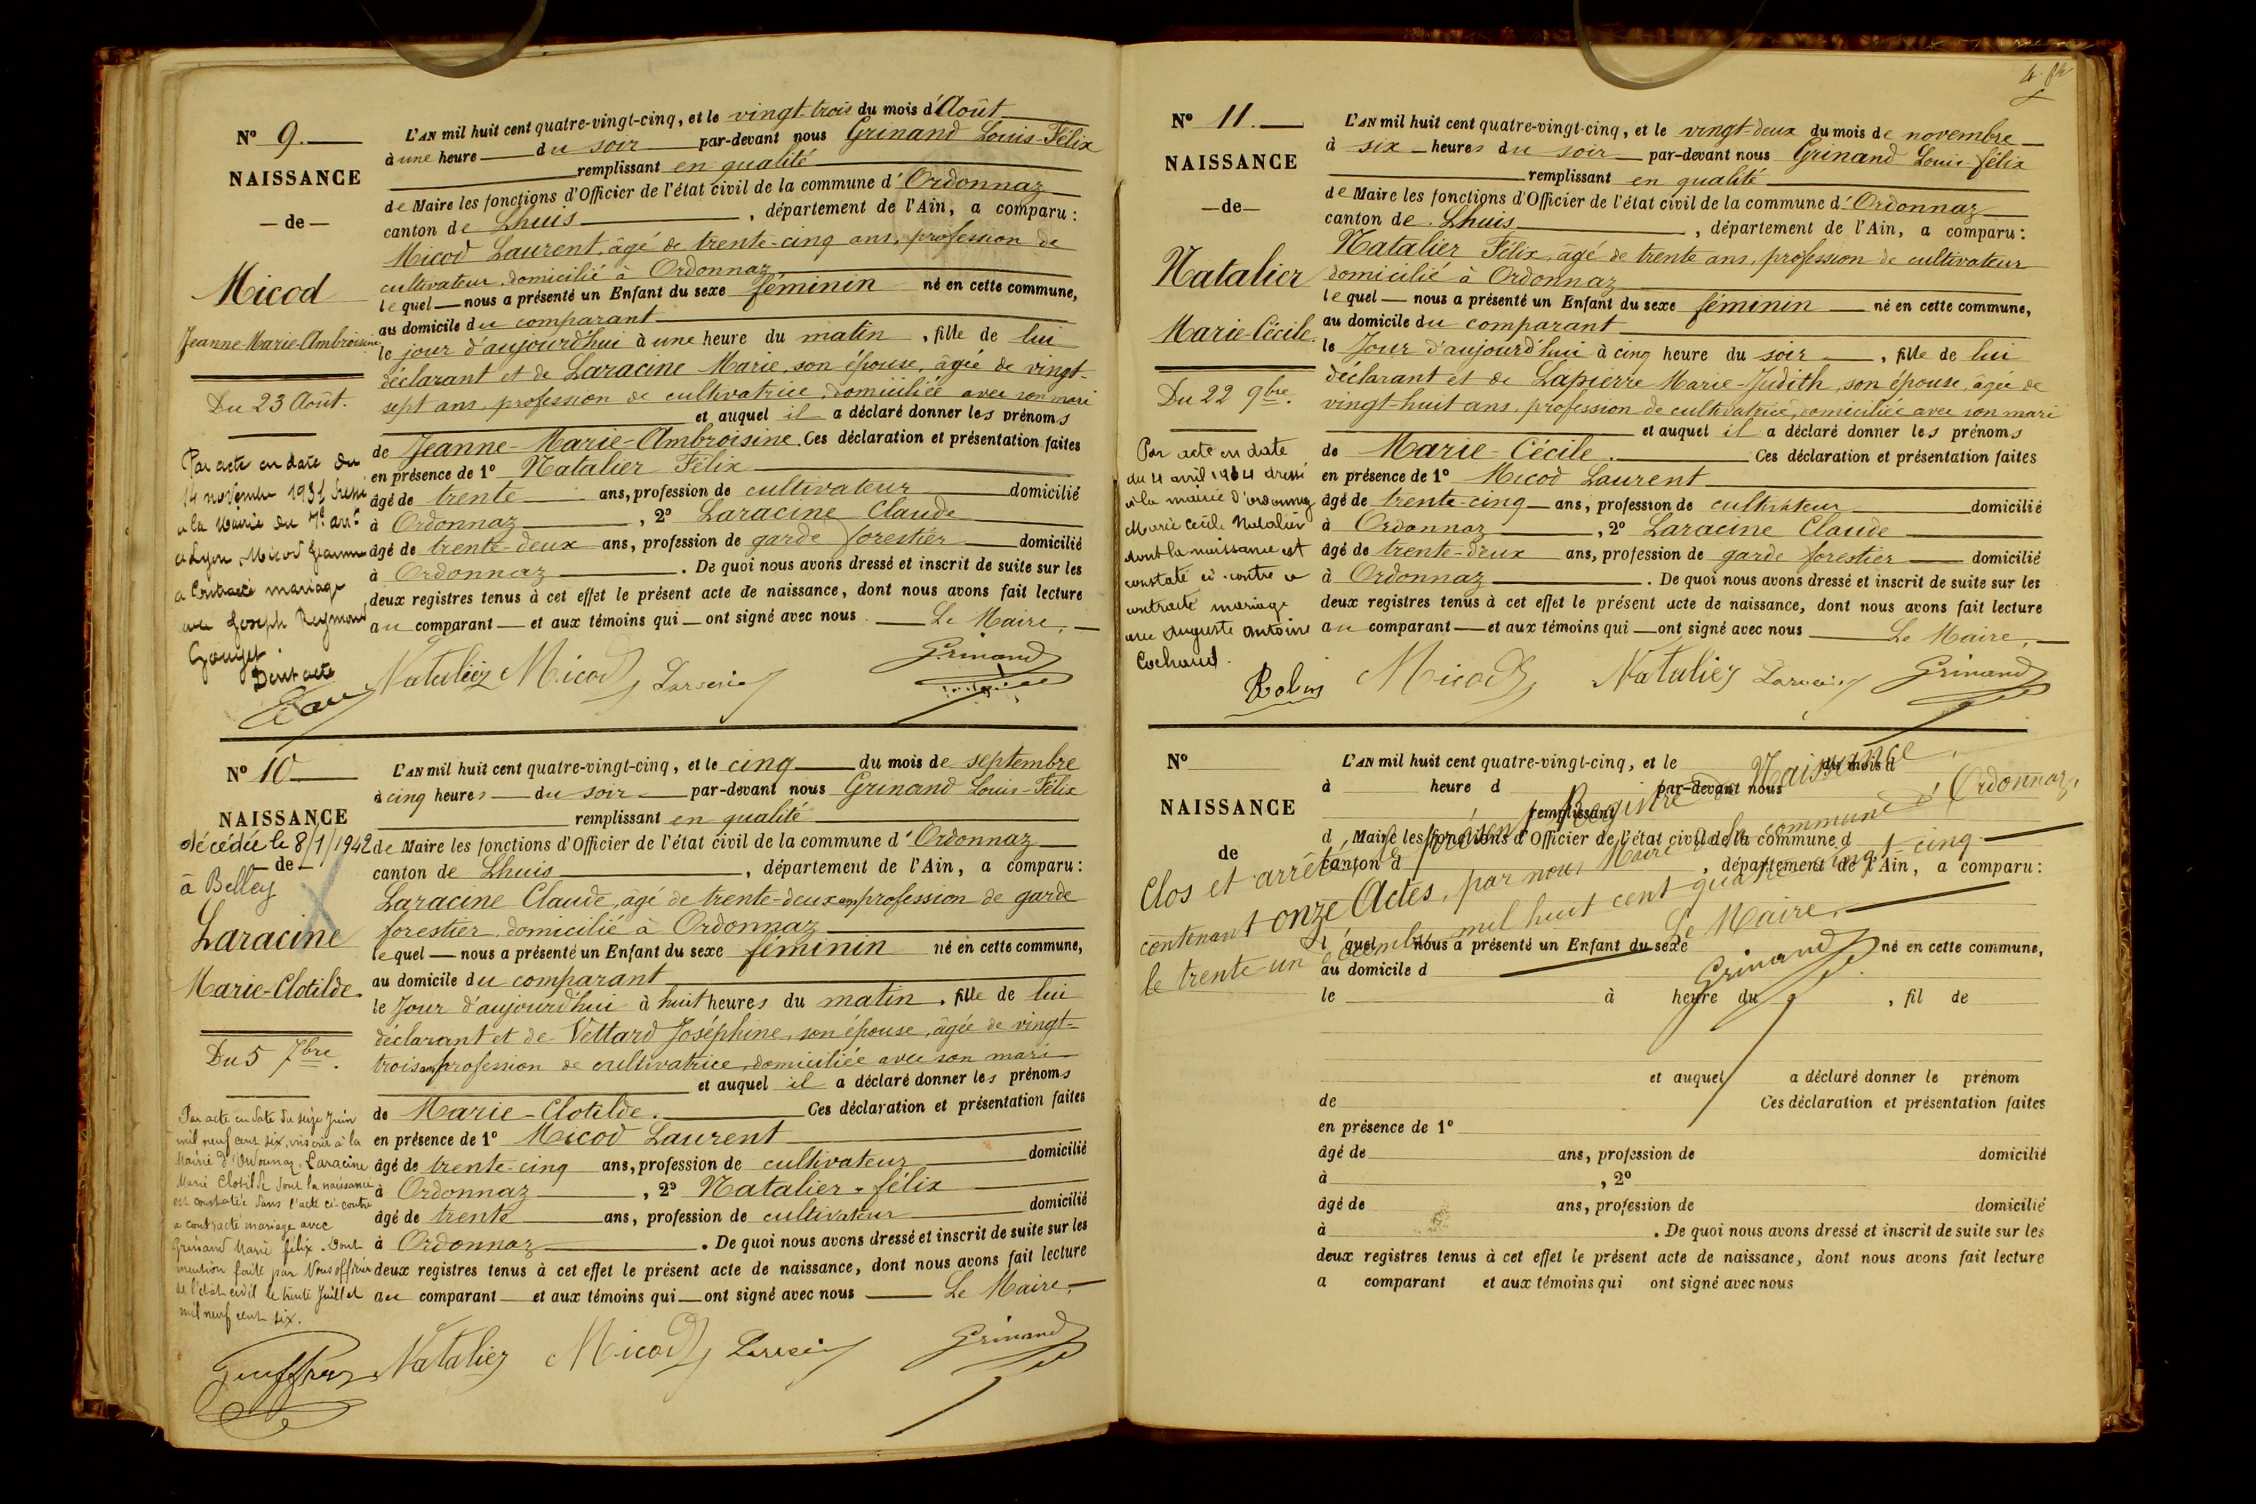 Nº 9.
NAISSANCE
de
Micod
Jeanne-Marie-Ambroisine
Du 23 Août.
Par acte en date du
14 novembre 1931 dressé
à la Mairie du 7e arrt
à Lyon, Micod Jeanne
a contracté mariage
avec Joseph Reymond
Gouget.
Dont acte
L'AN mil huit cent quatre-vingt-cinq, et le vingt-trois du mois d'Août
à une heure du soir par-devant nous Grinand Louis-Félix
remplissant en qualité
de Maire les fonctions d'Officier de l'état civil de la commune d'Ordonnaz
canton de Lhuis, département de l'Ain, a comparu :
Micod Laurent, âgé de trente-cinq ans, profession de
cultivateur, domicilié à Ordonnaz
lequel nous a présenté un Enfant du sexe féminin né en cette commune,
au domicile du comparant
le jour d'aujourd'hui à une heure du matin, fille de lui
déclarant et de Laracine Marie, son épouse, âgée de vingt-
sept ans, profession de cultivatrice, domiciliée avec son mari
et auquel il a déclaré donner les prénoms
de Jeanne-Marie-Ambroisine. Ces déclaration et présentation faites
en présence de 1º Natalier Félix
âgé de trente ans, profession de cultivateur domicilié
à Ordonnaz, 2º Laracine Claude
âgé de trente-deux ans, profession de garde forestier domicilié
à Ordonnaz. De quoi nous avons dressé et inscrit de suite sur les
deux registres tenus à cet effet le présent acte de naissance, dont nous avons fait lecture
au comparant et aux témoins qui ont signé avec nous. Le Maire,
Natalier Micod Laracine Grinand
Nº 10
NAISSANCE
décédée le 8/1/1942
de
à Belley
Laracine
Marie-Clotilde.
Du 5 7bre.
Par acte en date du seize Juin
mil neuf cent six, inscrit à la
Mairie d'Ordonnaz, Laracine
Marie Clotilde dont la naissance
est constatée dans l'acte ci-contre
a contracté mariage avec
Grinand Marie félix. Dont
mention faite par Nous officier
de l'état civil le trente Juillet
mil neuf cent six.
L'AN mil huit cent quatre-vingt-cinq, et le cinq du mois de septembre
à cinq heures du soir par-devant nous Grinand Louis-Félix
remplissant en qualité
de Maire les fonctions d'Officier de l'état civil de la commune d'Ordonnaz
canton de Lhuis, département de l'Ain, a comparu :
Laracine Claude, âgé de trente-deux ans profession de garde
forestier, domicilié à Ordonnaz
lequel nous a présenté un Enfant du sexe féminin né en cette commune,
au domicile du comparant
le Jour d'aujourd'hui à huit heures du matin, fille de lui
déclarant et de Vettard Joséphine, son épouse, âgée de vingt-
trois ans profession de cultivatrice, domiciliée avec son mari
et auquel il a déclaré donner les prénoms
de Marie-Clotilde. Ces déclaration et présentation faites
en présence de 1º Micod Laurent
âgé de trente-cinq ans, profession de cultivateur domicilié
à Ordonnaz, 2º Natalier-félix
âgé de trente ans, profession de cultivateur domicilié
à Ordonnaz. De quoi nous avons dressé et inscrit de suite sur les
deux registres tenus à cet effet le présent acte de naissance, dont nous avons fait lecture
au comparant et aux témoins qui ont signé avec nous Le Maire,
Natalier Micod Laracine Grinand
Nº 11.
NAISSANCE
de
Natalier
Marie-Cécile.
Du 22 9bre.
Par acte en date
du 4 avril 1914 dressé
à la mairie d'ordonnaz
Marie Cécile Natalier
dont la naissance est
constaté ci-contre a
contracté mariage
avec Auguste Antoine
Cochand.
Robin
L'AN mil huit cent quatre-vingt-cinq, et le vingt-deux du mois de novembre
à six heures du soir par-devant nous Grinand Louis-félix
remplissant en qualité
de Maire les fonctions d'Officier de l'état civil de la commune d'Ordonnaz
canton de Lhuis, département de l'Ain, a comparu :
Natalier Félix, âgé de trente ans, profession de cultivateur
domicilié à Ordonnaz
lequel nous a présenté un Enfant du sexe féminin né en cette commune,
au domicile du comparant
le Jour d'aujourd'hui à cinq heure du soir, fille de lui
déclarant et de Lapierre Marie-Judith, son épouse, âgée de
vingt-huit ans, profession de cultivatrice, domiciliée avec son mari
et auquel il a déclaré donner les prénoms
de Marie-Cécile. Ces déclaration et présentation faites
en présence de 1º Micod Laurent
âgé de trente-cinq ans, profession de cultivateur domicilié
à Ordonnaz, 2º Laracine Claude
âgé de trente-deux ans, profession de garde forestier domicilié
à Ordonnaz. De quoi nous avons dressé et inscrit de suite sur les
deux registres tenus à cet effet le présent acte de naissance, dont nous avons fait lecture
au comparant et aux témoins qui ont signé avec nous Le Maire,
Micod Natalier Laracine Grinand
Nº
NAISSANCE
de
L'AN mil huit cent quatre-vingt-cinq, et le du mois d
à heure d par-devant nous
remplissant
d Maire les fonctions d'Officier de l'état civil de la commune d
canton d, département de l'Ain, a comparu :
Clos et arrêté, le présent Registre de Naissance,
contenant onze Actes, par nous Maire de la commune d'Ordonnaz,
le trente un décembre mil huit cent quatre vingt cinq
Le Maire,
Grinand
l quel nous a présenté un Enfant du sexe né en cette commune,
au domicile d
le à heure du, fil de
et auquel a déclaré donner le prénom
de Ces déclaration et présentation faites
en présence de 1º
âgé de ans, profession de domicilié
à, 2º
âgé de ans, profession de domicilié
à. De quoi nous avons dressé et inscrit de suite sur les
deux registres tenus à cet effet le présent acte de naissance, dont nous avons fait lecture
a comparant et aux témoins qui ont signé avec nous